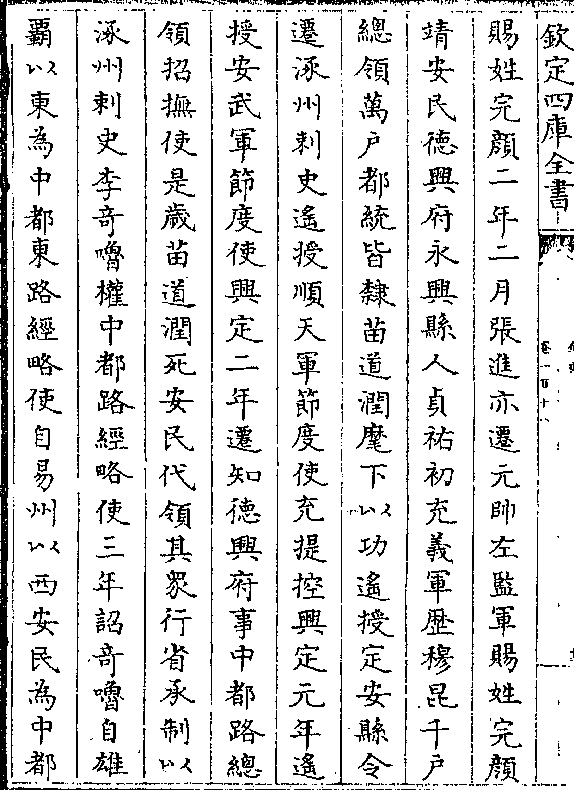 欽定四庫全書
卷一百十八
賜姓完顔二年二月張進亦遷元帥左監軍賜姓完顔
靖安民德興府永興縣人貞祐初充義軍歴穆昆千戶
總領萬戶都統皆隸苗道潤麾下以功遙授定安縣令
遷涿州刺史遙授順天軍節度使充提控興定元年遙
授安武軍節度使興定二年遷知德興府事中都路總
領招撫使是歲苗道潤死安民代領其衆行省承制以
涿州刺史李奇嚕權中都路經略使三年詔奇嚕自雄
覇以東為中都東路經略使自易州以西安民為中都